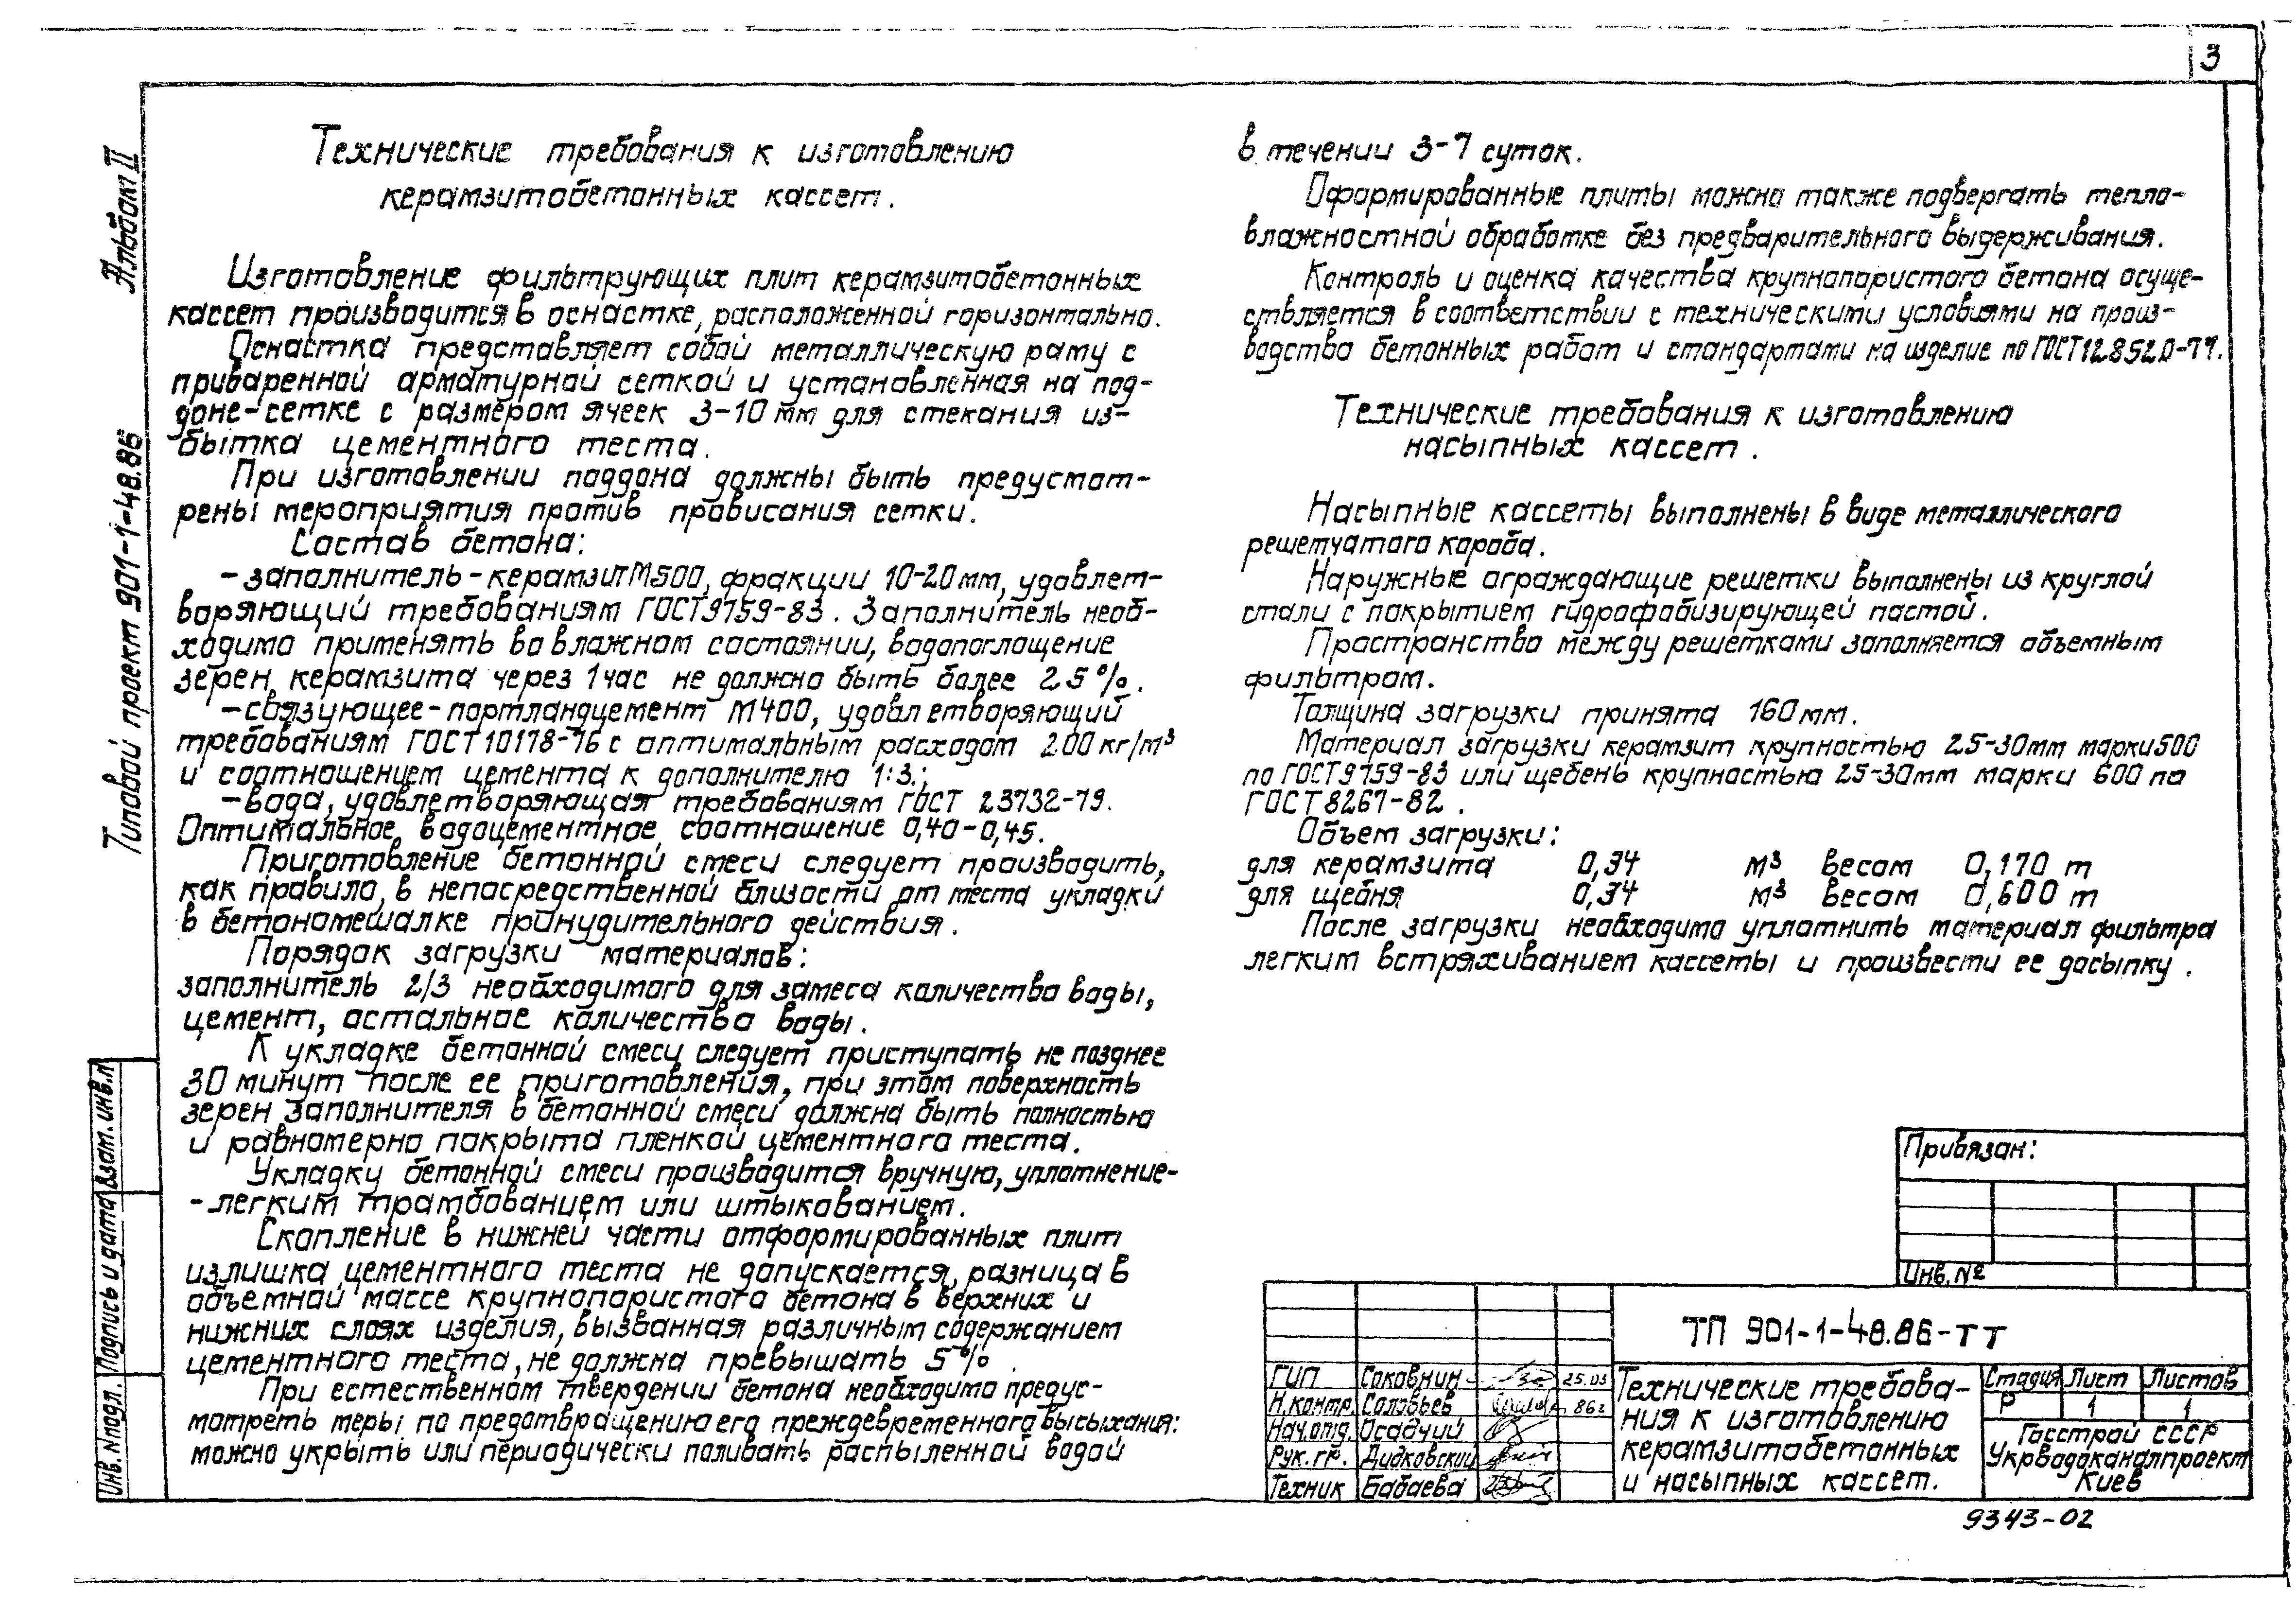 3
Альбом II
Типовой проект 901-1-48.86
Технические требования к изготовлению
керамзитобетонных кассет.
Изготовление фильтрующих плит керамзитобетонных
кассет производится в оснастке, расположенной горизонтально.
Оснастка представляет собой металлическую раму с
приваренной арматурной сеткой и установленная на под-
доне-сетке с размером ячеек 3-10 мм для стекания из-
бытка цементного теста.
При изготовлении поддона должны быть предусмот-
рены мероприятия против провисания сетки.
Состав бетона:
-заполнитель-керамзит М500, фракции 10-20мм, удовлет-
воряющий требованиям ГОСТ9759-83. Заполнитель необ-
ходимо применять во влажном состоянии, водопоглощение
зерен керамзита через 1 час не должно быть более 25%.
-связующее-портландцемент М400, удовлетворяющий
требованиям ГОСТ10178-76 с оптимальным расходом 200 кг/м³
и соотношением цемента к дополнителю 1:3.;
-вода, удовлетворяющая требованиям ГОСТ 23732-79.
Оптимальное водоцементное соотношение 0,40-0,45.
Приготовление бетонной смеси следует производить,
как правило, в непосредственной близости от места укладки
в бетономешалке принудительного действия.
Порядок загрузки материалов:
заполнитель 2/3 необходимого для замеса количества воды,
цемент, остальное количество воды.
К укладке бетонной смеси следует приступать не позднее
30 минут после ее приготовления, при этом поверхность
зерен заполнителя в бетонной смеси должна быть полностью
и равномерно покрыта пленкой цементного теста.
Укладку бетонной смеси производится вручную, уплотнение-
-легким трамбованием или штыкованием.
Скопление в нижней части отформированных плит
излишка цементного теста не допускается, разница в
объемной массе крупнопористого бетона в верхних и
нижних слоях изделия, вызванная различным содержанием
цементного теста, не должна превышать 5%.
При естественном твердении бетона необходимо предус-
мотреть меры по предотвращению его преждевременного высыхания:
можно укрыть или периодически поливать распыленной водой
в течении 3-7 суток.
Оформированные плиты можно также подвергать тепло-
влажностной обработке без предварительного выдерживания.
Контроль и оценка качества крупнопористого бетона осуще-
ствляется в соответствии с техническими условиями на произ-
водство бетонных работ и стандартами на изделие по ГОСТ12.852.0-77.
Технические требования к изготовлению
насыпных кассет.
Насыпные кассеты выполнены в виде металлического
решетчатого короба.
Наружные ограждающие решетки выполнены из круглой
стали с покрытием гидрофобизирующей пастой.
Пространство между решетками заполняется объемным
фильтром.
Толщина загрузки принята 160мм.
Материал загрузки керамзит крупностью 25-30мм марки 500
по ГОСТ9759-83 или щебень крупностью 25-30мм марки 600 по
ГОСТ 8267-82.
Объем загрузки:
для керамзита 0,34 м³ весом 0,170 т
для щебня 0,34 м³ весом 0,600 т
После загрузки необходимо уплотнить материал фильтра
легким встряхиванием кассеты и произвести ее досыпку.
Привязан:
Инв. №
ТП 901-1-48.86-ТТ
ГИП Соковнин 25.03
Н.контр. Соловьев 86г
Нач.отд. Осадчий
Рук.гр. Дидковский
Техник Бабаева
Технические требова-
ния к изготовлению
керамзитобетонных
и насыпных кассет.
Стадия Лист Листов
Р 1 1
Госстрой СССР
Укрводоканалпроект
Киев
9343-02
Взам.инв.№
Подпись и дата
Инв.№подл.